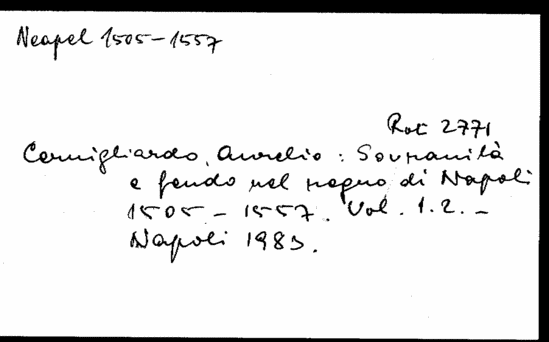 Neapel 1505-1557
Rot 2771
Cernigliardo, Aurelio: Sovranità
e feudo nel regno di Napoli
1505-1557. Vol. 1.2. -
Napoli 1983.